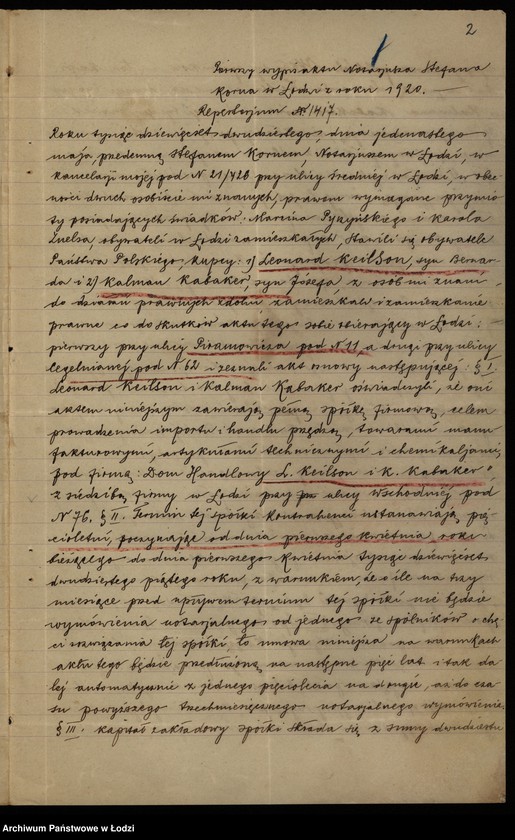 2
Pierwszy wypis aktu Notarjusza Stefana
Korna w Łodzi z roku 1920. —
Repertorjum № 1417.
Roku tysiąc dziewięćset dwudziestego, dnia jedenastego
maja, przedemną Stefanem Kornem, Notarjuszem w Łodzi, w
kancelarji mojej pod N 21/426 przy ulicy Średniej w Łodzi, w obec
ności dwuch osobiście mi znanych, prawem wymagane przymio
ty posiadających świadków: Marcina Pyzyńskiego i Karola
obywateli w Łodzi zamieszkałych, stawili się obywatele
Państwa Polskiego, kupcy: 1) Leonard Keilson, syn Bernar
da i 2) Kalman Kabaker, syn Józefa, z osób mi znani,
do działań prawnych zdolni, zamieszkali i zamieszkanie
prawne co do skutków aktu tego sobie obierający w Łodzi: —
pierwszy przy ulicy Piramowicza pod N 11, a drugi przy ulicy
Cegielnianej pod N 62 i zeznali akt umowy następującej: § I.
Leonard Keilson i Kalman Kabaker oświadczyli, że oni
aktem niniejszym zawierają pełną spółkę firmową, celem
prowadzenia importu i handlu przędzą, towarami manu
fakturowymi, artykułami technicznymi i chemikaljami,
pod firmą: Dom Handlowy L. Keilson i K. Kabaker"
z siedzibą firmy w Łodzi przy ulicy Wschodniej pod
N 76. § II. Termin tej spółki kontrahenci ustanawiają pię
cioletni, poczynając od dnia pierwszego kwietnia roku
bieżącego do dnia pierwszego kwietnia tysiąc dziewięćset
dwudziestego piątego roku, z warunkiem, że o ile na trzy
miesiące przed upływem terminu tej spółki nie będzie
wymówienia notarjalnego od jednego ze spólników o chę
ci rozwiązania tej spółki to umowa niniejsza na warunkach
aktu tego będzie przedłużoną na następne pięć lat i tak da
lej automatycznie z jednego pięciolecia na drugie, aż do cza
su powyższego trzechmiesięcznego notarjalnego wymówienia.
§ III. Kapitał zakładowy spółki składa się z sumy dwudziestu
Archiwum Państwowe w Łodzi